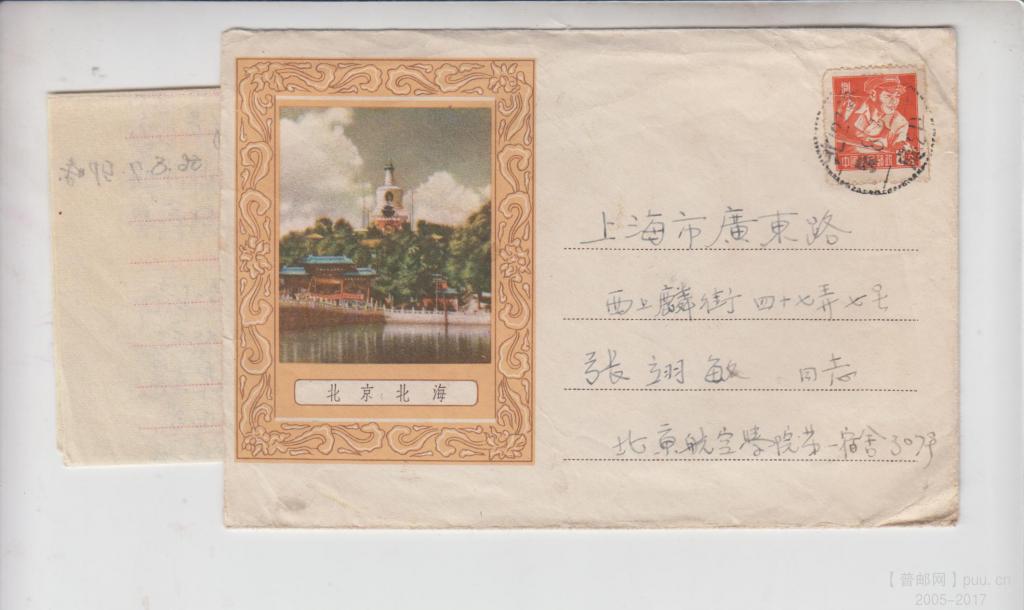 上海市廣東路
西上麟街四十七弄七号
張翊敏 同志
北京航空學院第一宿舍307号
北京北海
56.8.7.
【普邮网】puu.cn
2005-2017